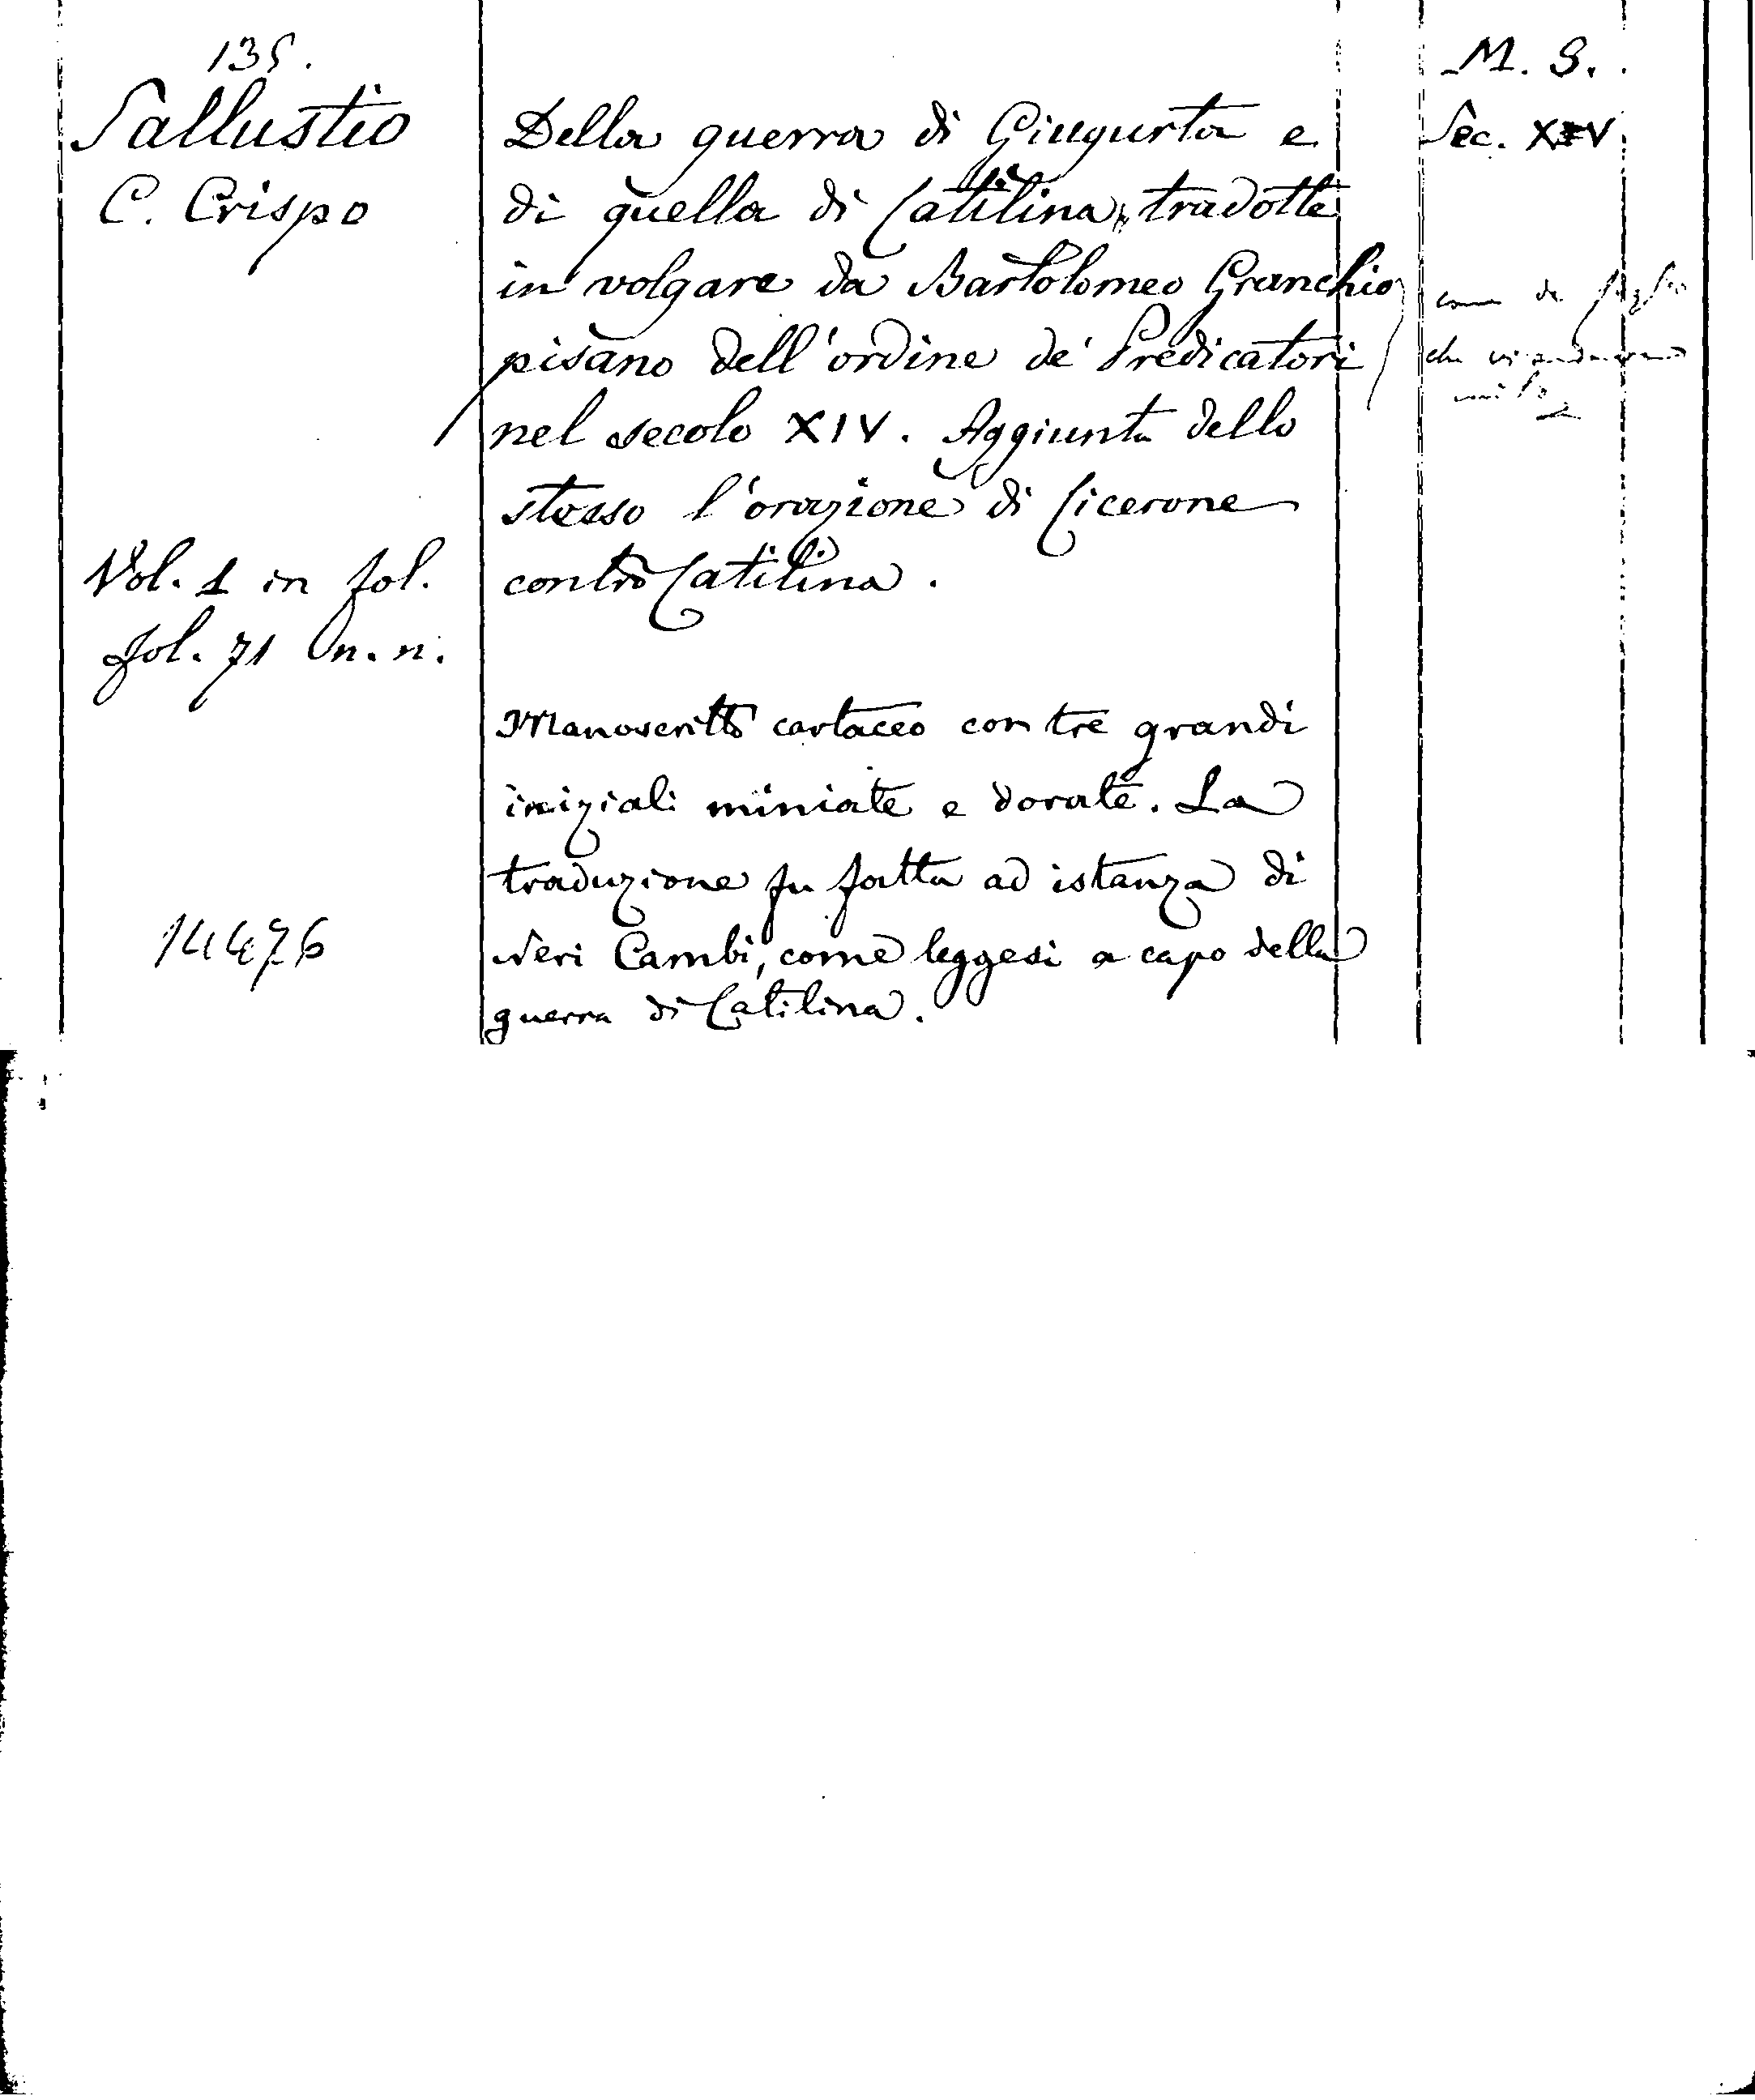 135.
Sallustio
C. Crispo
Vol. 1 in fol.
fol. 71 n. n.
14476
Della guerra di Giugurta e
di quella di Catilina, tradotte
in volgare da Bartolomeo Granchio
pisano dell'ordine de' Predicatori
nel secolo XIV. Aggiunta dello
stesso l'orazione di Cicerone
contro Catilina.
Manoscritto cartaceo con tre grandi
iniziali miniate e dorate. La
traduzione fu fatta ad istanza di
Neri Cambi, come leggesi a capo della
guerra di Catilina.
M. S.
Sec. XIV
come da
che vi